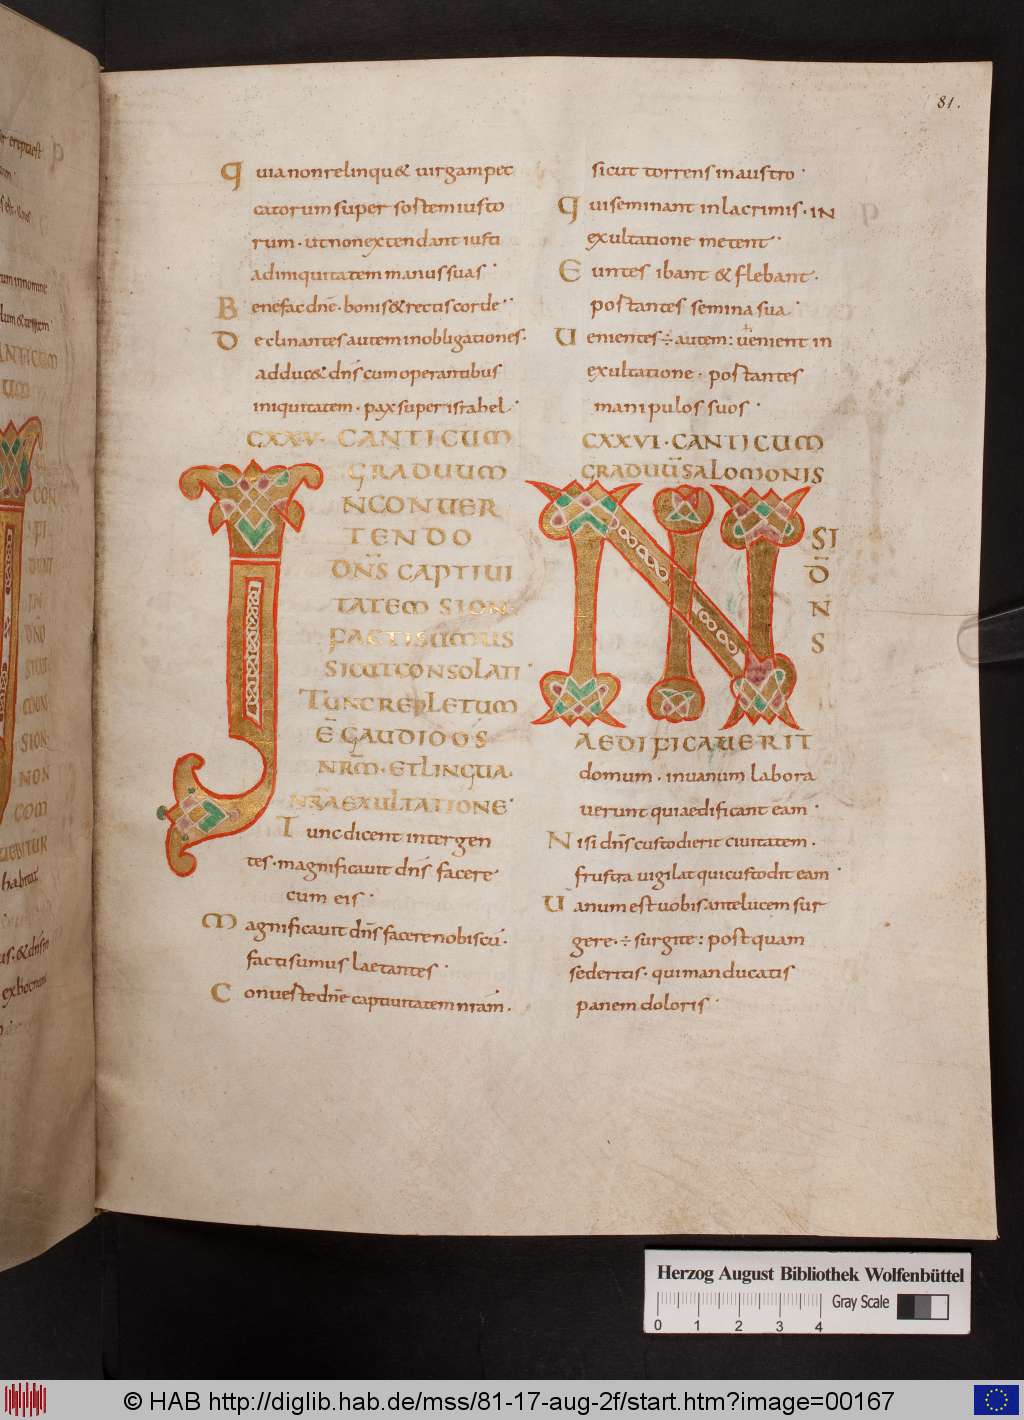 81.
Quia non relinqu& uirgam pec
catorum super sortem iusto
rum · ut non extendant iusti
ad iniquitatem manus suas ·
Benefac dn̄e · bonis & rectis corde ·
Declinantes autem in obligationes ·
adduc& dn̄s cum operantibus
iniquitatem · pax super israhel ·
CXXV · CANTICUM
GRADUUM
INCONUER
TENDO
DN̄S CAPTIUI
TATEM SION ·
FACTI SUMUS
SICUT CONSOLATI ·
TUNC REPLETUM
Ē GAUDIO OS
NR̄M · ET LINGUA ·
NR̄A EXULTATIONE ·
Tunc dicent inter gen
tes · magnificauit dn̄s facere
cum eis ·
Magnificauit dn̄s facere nobiscū ·
facti sumus laetantes ·
Conuerte dn̄e captiuitatem nr̄am ·
sicut torrens in austro ·
Qui seminant in lacrimis · in
exultatione metent ·
Euntes ibant & flebant ·
portantes semina sua ·
Uenientes ÷ autem : uenient in
exultatione · portantes
manipulos suos ·
CXXVI · CANTICUM
GRADUŪ SALOMONIS
NISI
D̄
N
S
AEDIFICAUERIT
domum · in uanum labora
uerunt qui aedificant eam ·
Nisi dn̄s custodierit ciuitatem ·
frustra uigilat qui custodit eam ·
Uanum est uobis ante lucem sur
gere · ÷ surgite : postquam
sederitis · qui manducatis
panem doloris ·
Herzog August Bibliothek Wolfenbüttel
Gray Scale
0 1 2 3 4
© HAB http://diglib.hab.de/mss/81-17-aug-2f/start.htm?image=00167